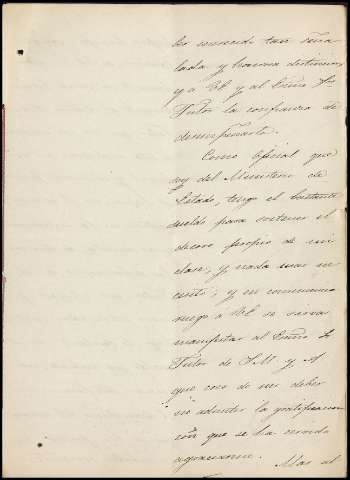 los concedi tan seña
lada y honrosa distincion
y a VE y al Exmo Sor
Tutor la confianza de
desempeñarlo.
Como Oficial que
soy del Ministerio de
Estado, tengo el bastante
sueldo para sostener el
decoro propio de mi
clase, y nada mas ne
cesito; y en consecuencia
ruego a VE se sirva
manifestar al Exmo Sr
Tutor de S.M. y A
que creo de mi deber
no admitir la gratificacion
con que se ha servido
agraciarme.
Mas al